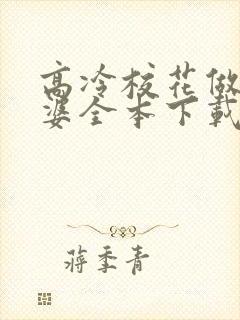 高冷校花做
婆全本下载
蒋季青